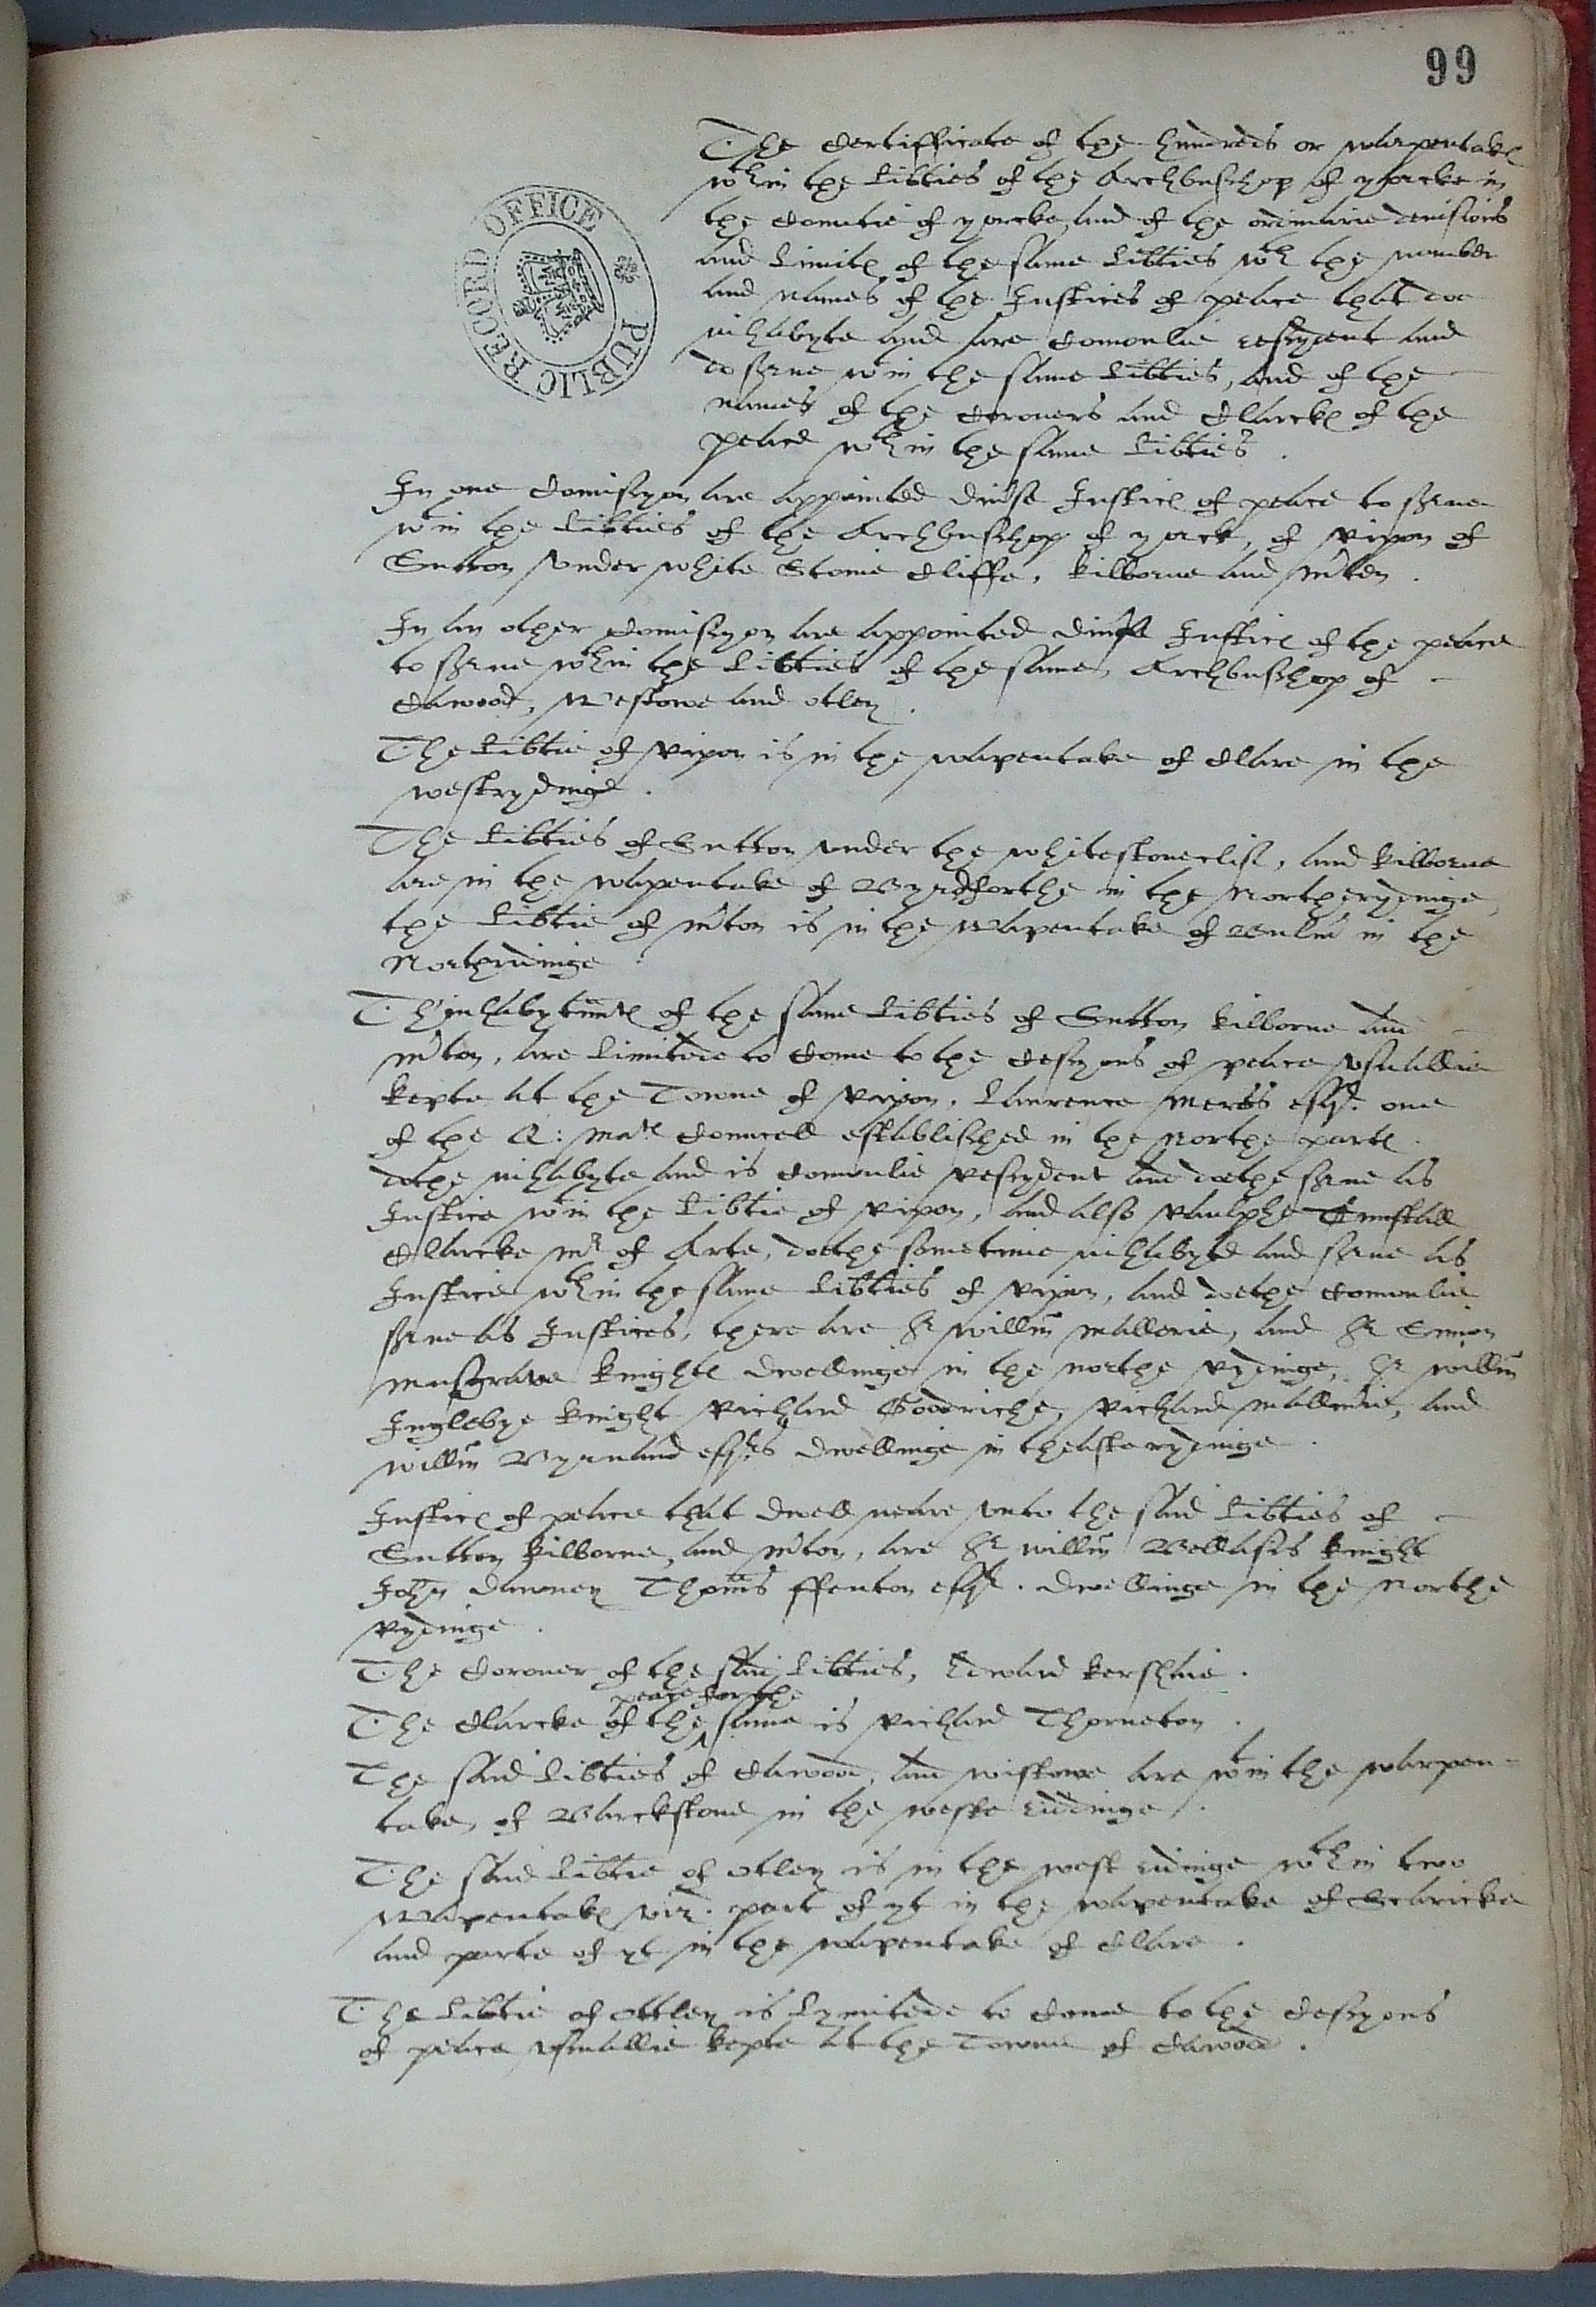 99
PUBLIC RECORD OFFICE
The Certifficate of the hundreds or wapentakes
wthin the Libties of the Archbusshop of yorcke in
the Countie of yorcke, and of the ordinarie devisions
and Limits of the same Libties wth the number
and names of the Justices of peace that doe
inhabyte and are Comonlie resydent and
do serve wtin the same Libties, and of the
names of the Coroners and Clarckes of the
peace wthin the same Libties.
In one Comissyon are appointed divse Justices of peace to serve
wtin the Libties of the Archbusshop of yorck, of Ripon of
Sutton under white Stonie Cliffe, Kilborne and mton.
In an other Comissyon are appointed divse Justices of the peace
to serve wthin the Libties of the same Archbusshop of
Cawood, Westowe and otley.
The Libtie of Ripon is in the wapentake of Clare in the
westrydinge.
The Libties of Sutton under the whitestoneclif, and Kilborne
are in the wapentake of Byrdforthe in the Northerydinge,
the Libtie of mton is in the Wapentake of Bulm in the
Northridinge.
Th'inhabytants of the same Libties of Sutton Kilborne and
mton, are Limitede to Come to the Cessyons of peace usuallie
kepte at the Towne of Ripon, Laurence Meres esqr. one
of the Q: Mates Councell established in the Northe partes.
dothe inhabyte and is Comonlie Resydent and dothe serve as
Justice wtin the Libtie of Ripon, and also Raulphe Tunstall
Clarcke mr of Arte, dothe sometimie inhabyte and serve as
Justice wthin the same Libties of Ripon, and dothe Comonlie
serve as Justices, there are Sr willm mallerie, and Sr Simon
musgrave Knightes dwellinge in the northe Rydinge, Sr willm
Inglebye Knight Richard Goodriche, Richard mallerie, and
willm Byrnand esqrs dwellinge in theaste rydinge.
Justices of peace that dwell neare unto the said Libties of
Sutton Kilborne, and mton, are Sr willm Bellasis Knight
John dawney Thomas ffenton esqr. dwellinge in the Northe
Rydinge.
The Coroner of the said Libties, Edward Kershawe.
The Clarcke of the peace for the same is Richard Thorneton.
The said Libties of Cawood, and wistowe are wtin the warpen-
take, of Barckstone in the weste Riddinge.
The said Libtie of otley is in the west ridinge wthin two
Wapentakes viz. part of yt in the wapentake of Scaricke
and parte of yt in the wapentake of Clare.
The Libtie of ottley is Lymitede to Come to the Cessyons
of peace usuallie kepte at the Towne of Cawood.